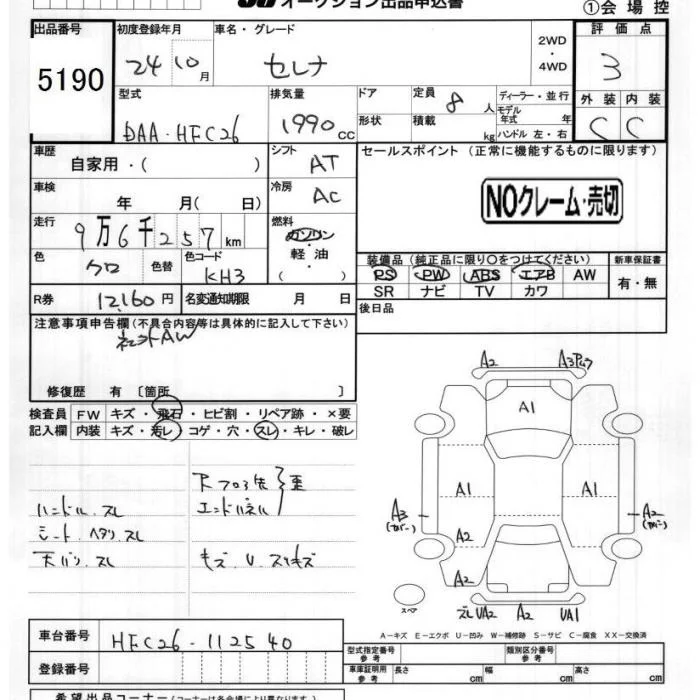 オークション出品申込書
①会場控
出品番号
5190
初度登録年月
24 10月
車名・グレード
セレナ
2WD
・
4WD
評価点
3
外装 内装
C C
型式
DAA-HFC26
排気量
1990cc
ドア
形状
定員 8人
積載 kg
ディーラー・並行
モデル年式 年
ハンドル 左・右
車歴
自家用・( )
シフト
AT
セールスポイント(正常に機能するものに限ります)
NOクレーム・売切
車検
年 月( 日)
冷房
AC
走行
9万6千257km
燃料
ガソリン
・
軽油
( )
色
クロ
色替
色コード
KH3
装備品(純正品に限り〇をつけてください)
PS PW ABS エアB AW
SR ナビ TV カワ
新車保証書
有・無
R券 12,160円
名変通知期限 月 日
後日品
注意事項申告欄(不具合内容等は具体的に記入して下さい)
社外AW
修復歴 有〔箇所 〕
検査員
記入欄
FW キズ・飛石・ヒビ割・リペア跡・×要
内装 キズ・汚レ・コゲ・穴・スレ・キレ・破レ
ハンドル、スレ
シート、ヘタリ、スレ
天バリ、スレ
Rフロア先
エンドパネル
歪
キズ、U、スリキズ
A2 A3
A1
A1 A1
A3
(カバー)
A2
(カバー)
A2
A2
スペア
スレ UA2 A2 UA1
A-キズ E-エクボ U-凹み W-補修跡 S-サビ C-腐食 XX-交換済
車台番号
HFC26-112540
登録番号
型式指定番号
参考
類別区分番号
参考
車庫証明用
参考
長さ cm 幅 cm 高さ cm
希望出品コーナー(コーナーは各会場により異なります)